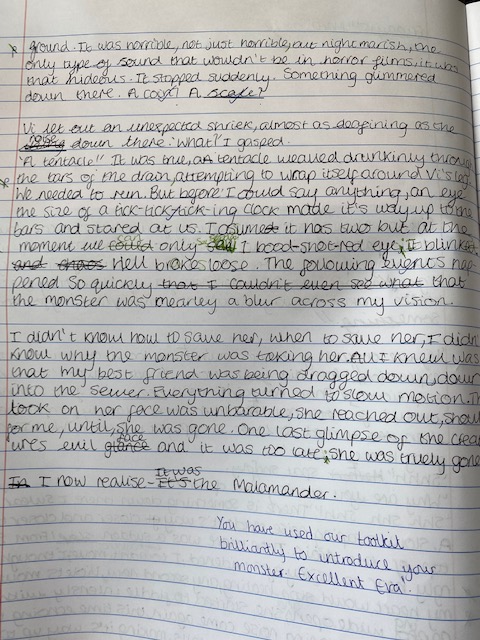 ground. It was horrible, not just horrible, but nightmarish, the
only type of sound that wouldn't be in horror films, it was
that hideous. It stopped suddenly. Something glimmered
down there. A coga? A scale?
Vi let out an unexpected shriek, almost as deafening as the
noise down there. 'what' I gasped.
'A tentacle!' It was true, a tentacle weaved drunkinly through
the bars of the drain, attempting to wrap itself around Vi's leg
We needed to run. But before I could say anything, an eye
the size of a tick-tick-tick-ing clock made it's way up to the
bars and stared at us. I asumed it has two but at the
moment we only I blood-shot-red eye; It blinked
and chaos Hell brokes loose. The following events hap
pened so quickly that I couldn't even see what that
the monster was mearley a blur across my vision.
I didn't know how to save her, when to save her, I didn
know why the monster was taking her. All I knew was
that my best friend was being dragged down, down
into the sewer. Everything turned to slow motion. Th
look on her face was unbarable, she reached out, shou
for me, until, she was gone. One last glimpse of the crea
ures evil glance face and it was too late; she was truely gone
In I now realise - It's It was the Malamander.
You have used our toolkit
brilliantly to introduce your
monster. Excellent Eva!